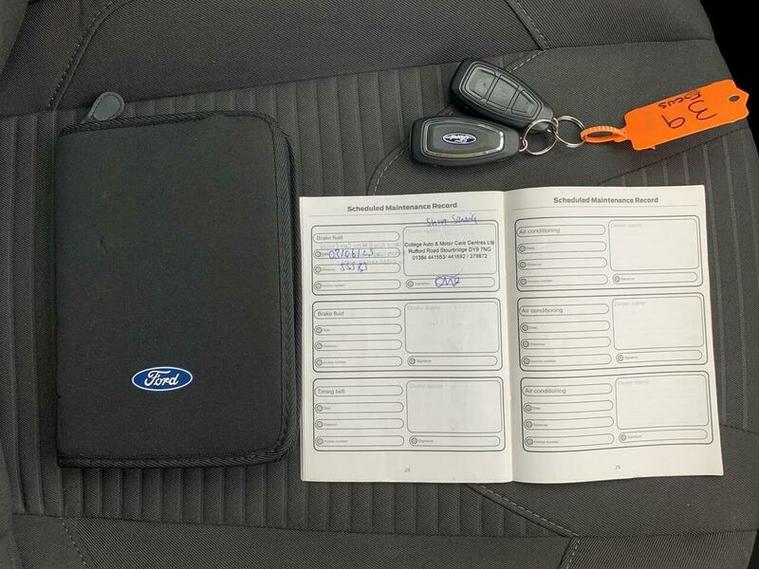 Ford
Ford
39
Focus
Scheduled Maintenance Record
Brake fluid
Date
Distance
Invoice number
College Auto & Motor Care Centres Ltd
Rufford Road Stourbridge DY9 7NG
01384 441553/ 441692 / 379872
Signature
Brake fluid
Date
Distance
Invoice number
Dealer stamp
Signature
Timing belt
Date
Distance
Invoice number
Dealer stamp
Signature
28
Scheduled Maintenance Record
Air conditioning
Date
Distance
Invoice number
Dealer stamp
Signature
Air conditioning
Date
Distance
Invoice number
Dealer stamp
Signature
Air conditioning
Date
Distance
Invoice number
Dealer stamp
Signature
29